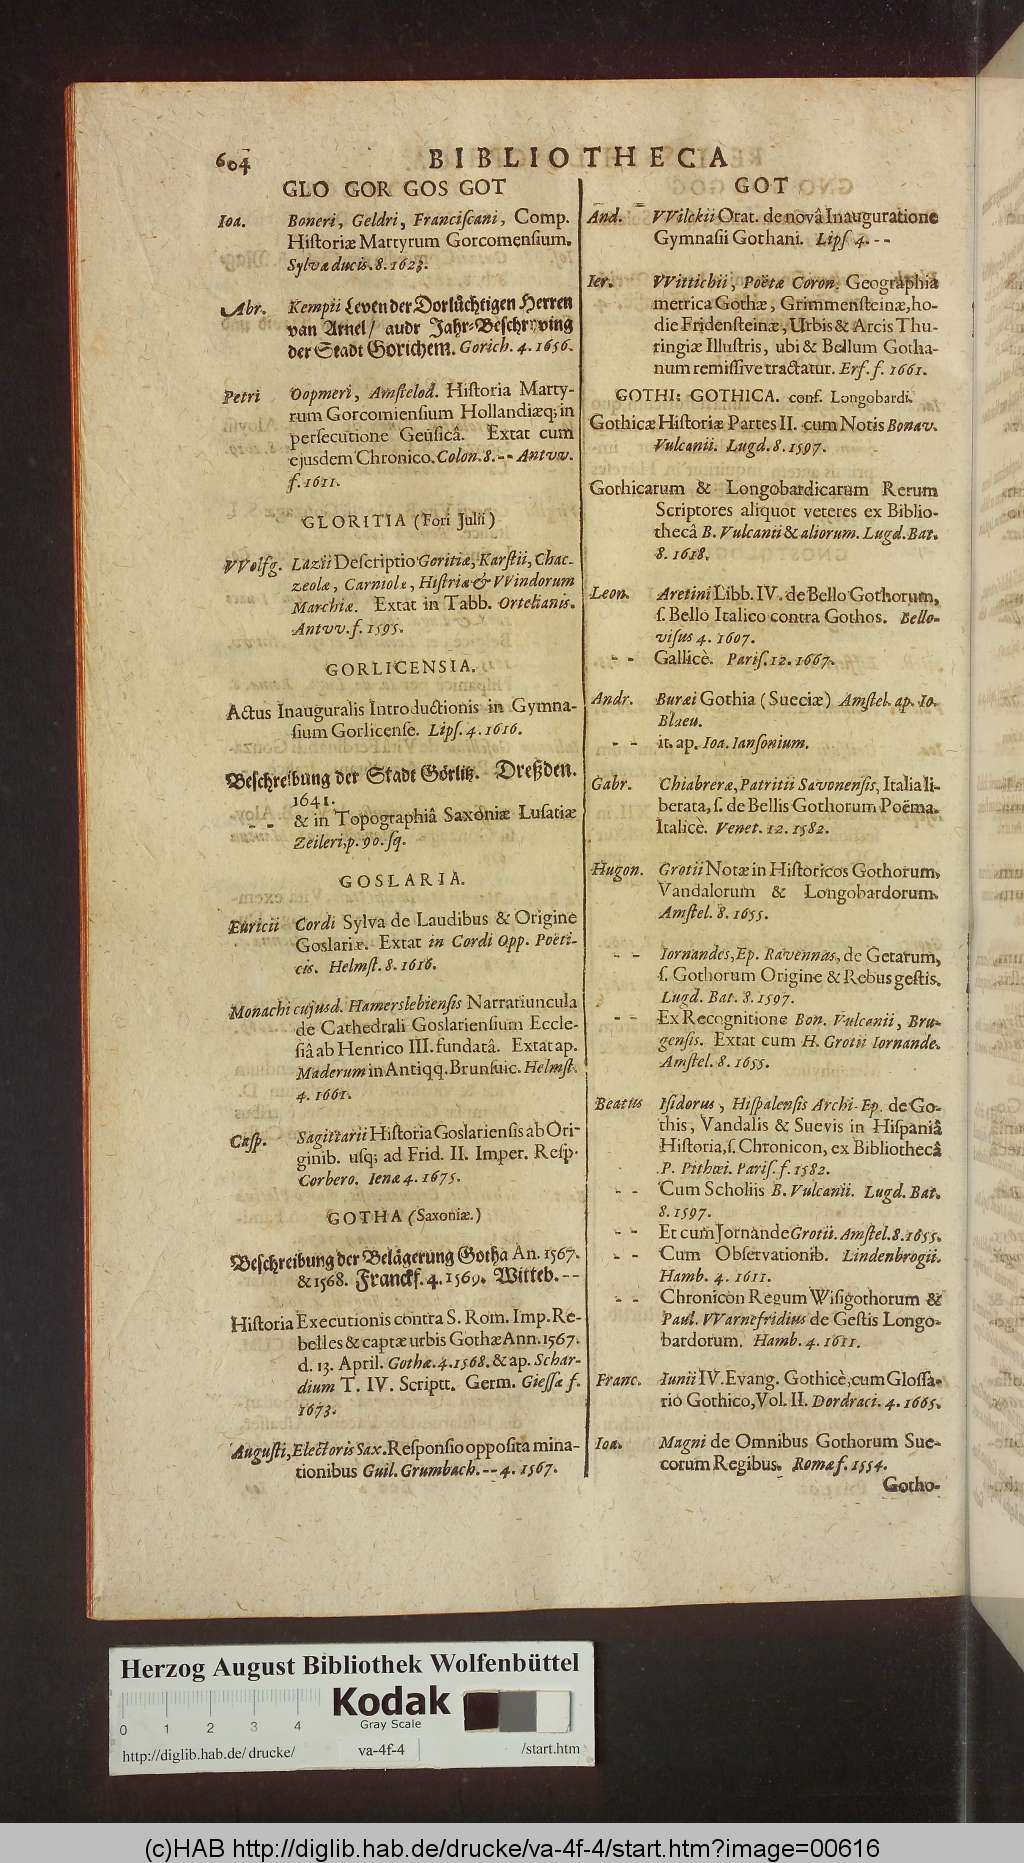 604 BIBLIOTHECA
GLO GOR GOS GOT
Ioa. Boneri, Geldri, Franciſcani, Comp.
Hiſtoriæ Martyrum Gorcomenſium.
Sylvæducis. 8. 1623.
Abr. Kempii Leven der Dorlüchtigen Herren
van Arnel/ audr Jahr-Beschryving
der Stadt Gorichem. Gorich. 4. 1656.
Petri Oopmeri, Amſtelod. Hiſtoria Marty-
rum Gorcomienſium Hollandiæq; in
perſecutione Geuſicâ. Extat cum
ejusdem Chronico. Colon. 8. -- Antvv.
f. 1611.
GLORITIA (Fori Julii)
VVolfg. Lazii Deſcriptio Goritiæ, Karſtii, Chac-
zeolæ, Carniolæ, Hiſtriæ & VVindorum
Marchiæ. Extat in Tabb. Ortelianis.
Antvv. f. 1595.
GORLICENSIA.
Actus Inauguralis Introductionis in Gymna-
ſium Gorlicenſe. Lipſ. 4. 1616.
Beschreibung der Stadt Görlitz. Dreßden.
1641.
-- & in Topographiâ Saxoniæ Luſatiæ
Zeileri, p. 90. ſq.
GOSLARIA.
Euricii Cordi Sylva de Laudibus & Origine
Goslariæ. Extat in Cordi Opp. Poëti-
cis. Helmſt. 8. 1616.
Monachi cujusd. Hamerslebienſis Narratiuncula
de Cathedrali Goslarienſium Eccle-
ſiâ ab Henrico III. fundatâ. Extat ap.
Maderum in Antiqq. Brunſuic. Helmſt.
4. 1661.
Caſp. Sagittarii Hiſtoria Goslarienſis ab Ori-
ginib. uſq; ad Frid. II. Imper. Reſp.
Corbero. Ienæ 4. 1675.
GOTHA (Saxoniæ.)
Beschreibung der Belägerung Gotha An. 1567.
& 1568. Franckf. 4. 1569. Witteb. --
Hiſtoria Executionis contra S. Rom. Imp. Re-
belles & captæ urbis Gothæ Ann. 1567.
d. 13. April. Gothæ. 4. 1568. & ap. Schar-
dium T. IV. Scriptt. Germ. Gieſſæ f.
1673.
Auguſti, Electoris Sax. Reſponſio oppoſita mina-
tionibus Guil. Grumbach. -- 4. 1567.
GOT
And. VVilckii Orat. de novâ Inauguratione
Gymnaſii Gothani. Lipſ 4. --
Ier. VVittichii, Poëtæ Coron. Geographia
metrica Gothæ, Grimmenſteinæ, ho-
die Fridenſteinæ, Urbis & Arcis Thu-
ringiæ Illuſtris, ubi & Bellum Gotha-
num remiſſive tractatur. Erf. f. 1661.
GOTHI: GOTHICA. conf. Longobardi.
Gothicæ Hiſtoriæ Partes II. cum Notis Bonav.
Vulcanii. Lugd. 8. 1597.
Gothicarum & Longobardicarum Rerum
Scriptores aliquot veteres ex Biblio-
thecâ B. Vulcanii & aliorum. Lugd. Bat.
8. 1618.
Leon. Aretini Libb. IV. de Bello Gothorum,
ſ. Bello Italico contra Gothos. Bello-
viſus 4. 1607.
-- Gallicè. Pariſ. 12. 1667.
Andr. Buræi Gothia (Sueciæ) Amſtel. ap. Io.
Blaeu.
-- it. ap. Ioa. Ianſonium.
Gabr. Chiabreræ, Patritii Savonenſis, Italia li-
berata, ſ. de Bellis Gothorum Poëma.
Italicè. Venet. 12. 1582.
Hugon. Grotii Notæ in Hiſtoricos Gothorum,
Vandalorum & Longobardorum.
Amſtel. 8. 1655.
-- Iornandes, Ep. Ravennas, de Getarum,
ſ. Gothorum Origine & Rebus geſtis.
Lugd. Bat. 8. 1597.
-- Ex Recognitione Bon. Vulcanii, Bru-
genſis. Extat cum H. Grotii Iornande.
Amſtel. 8. 1655.
Beatus Iſidorus, Hiſpalenſis Archi-Ep. de Go-
this, Vandalis & Suevis in Hiſpaniâ
Hiſtoria, ſ. Chronicon, ex Bibliothecâ
P. Pithœi. Pariſ. f. 1582.
-- Cum Scholiis B. Vulcanii. Lugd. Bat.
8. 1597.
-- Et cum Jornande Grotii. Amſtel. 8. 1655.
-- Cum Obſervationib. Lindenbrogii.
Hamb. 4. 1611.
-- Chronicon Regum Wiſigothorum &
Paul. VVarnefridius de Geſtis Longo-
bardorum. Hamb. 4. 1611.
Franc. Iunii IV. Evang. Gothicè, cum Gloſſa-
rio Gothico, Vol. II. Dordraci. 4. 1665.
Ioa. Magni de Omnibus Gothorum Sue-
corum Regibus. Romæ f. 1554.
Gotho-
Herzog August Bibliothek Wolfenbüttel
Kodak
Gray Scale
0 1 2 3 4
http://diglib.hab.de/drucke/ va-4f-4 /start.htm
(c)HAB http://diglib.hab.de/drucke/va-4f-4/start.htm?image=00616